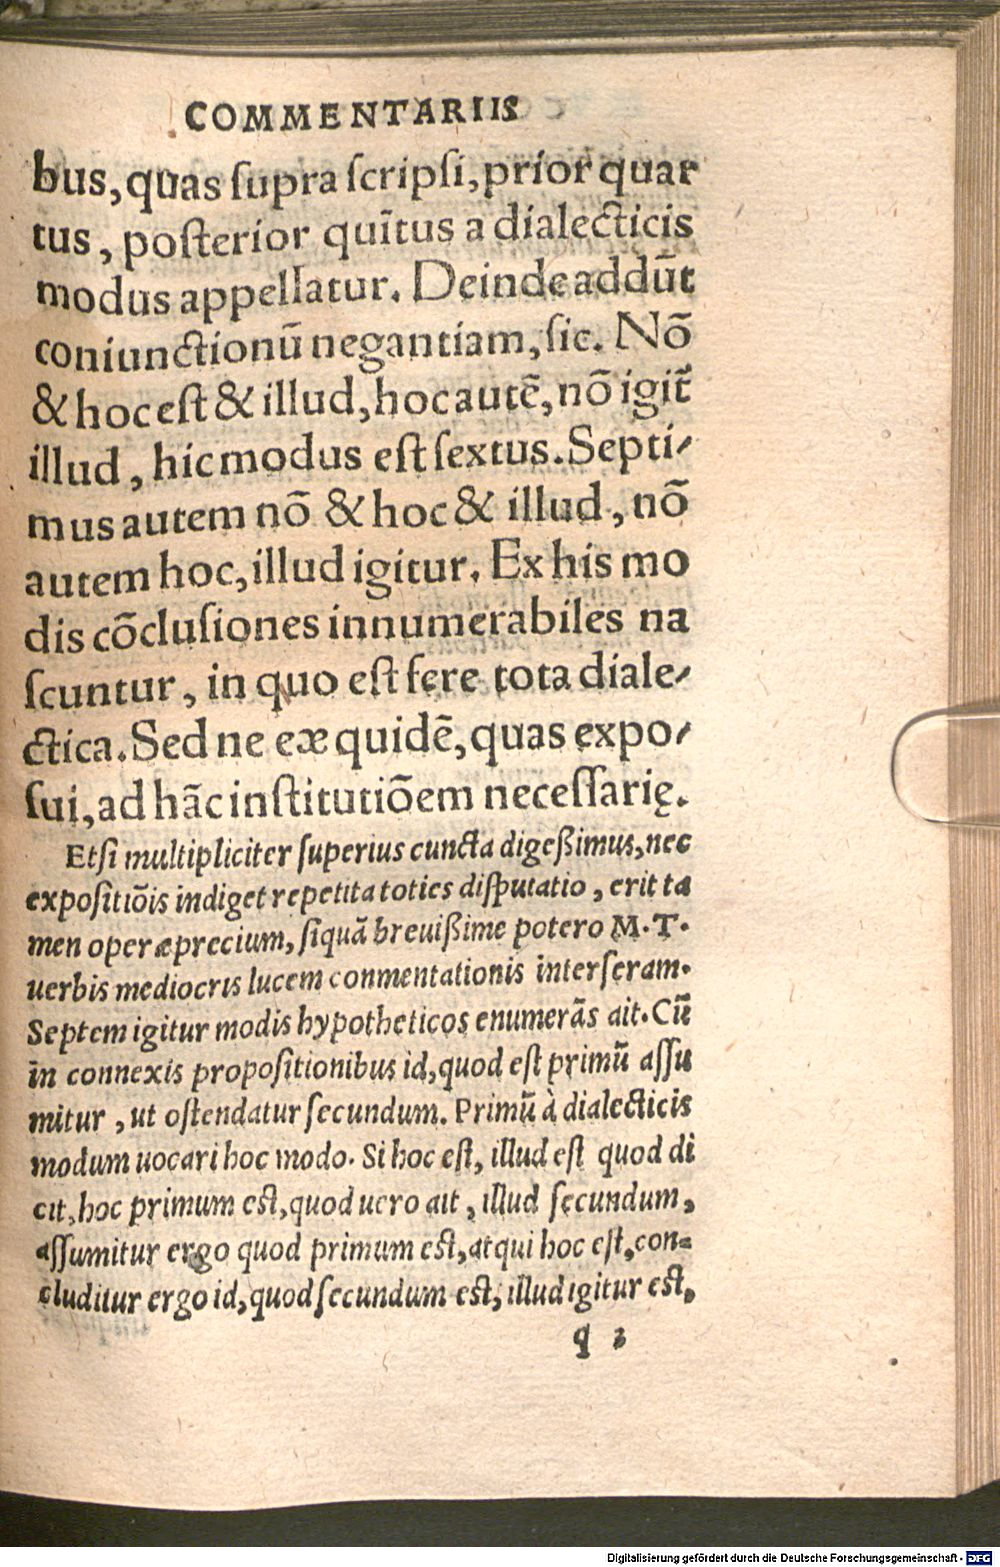 COMMENTARIIS
bus, quas supra scripsi, prior quar
tus, posterior quītus a dialecticis
modus appellatur. Deinde addūt
coniunctionū negantiam, sic. Nō
& hoc est & illud, hoc autē, nō igit᷑
illud, hic modus est sextus. Septi-
mus autem nō & hoc & illud, nō
autem hoc, illud igitur. Ex his mo
dis cōclusiones innumerabiles na
scuntur, in quo est fere tota diale-
ctica. Sed ne eæ quidē, quas expo-
sui, ad hāc institutiōem necessarię.
Etsi multipliciter superius cuncta digeßimus, nec
expositiōis indiget repetita toties disputatio, erit ta
men operæprecium, siquā breuißime potero M. T.
uerbis mediocris lucem conmentationis interseram.
Septem igitur modis hypotheticos enumerās ait. Cū
in connexis propositionibus id, quod est primū assu
mitur, ut ostendatur secundum. Primū à dialecticis
modum uocari hoc modo. Si hoc est, illud est quod di
cit, hoc primum est, quod uero ait, illud secundum,
assumitur ergo quod primum est, atqui hoc est, con=
cluditur ergo id, quod secundum est, illud igitur est,
q 3
Digitalisierung gefördert durch die Deutsche Forschungsgemeinschaft - DFG